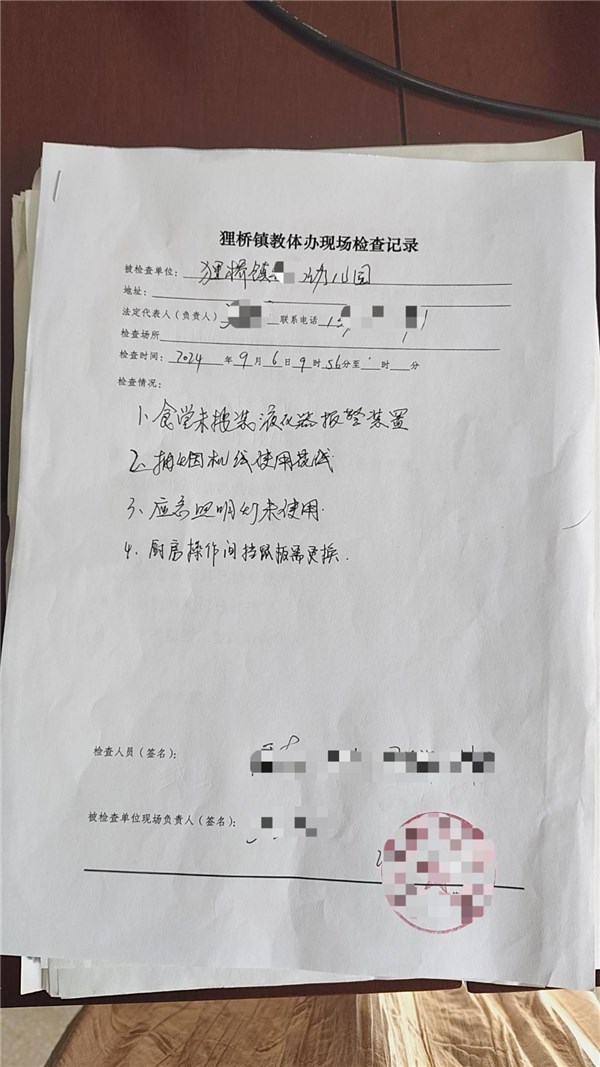 狸桥镇教体办现场检查记录
被检查单位: 狸桥镇 幼儿园
地址:
法定代表人(负责人) 联系电话 1
检查场所
检查时间: 2024 年 9 月 6 日 9 时 56 分至 时 分
检查情况:
1、食堂未按装液化器报警装置
2、抽烟机线使用接线
3、应急照明灯未使用.
4、厨房操作间挡鼠板需更换.
检查人员(签名):
被检查单位现场负责人(签名):